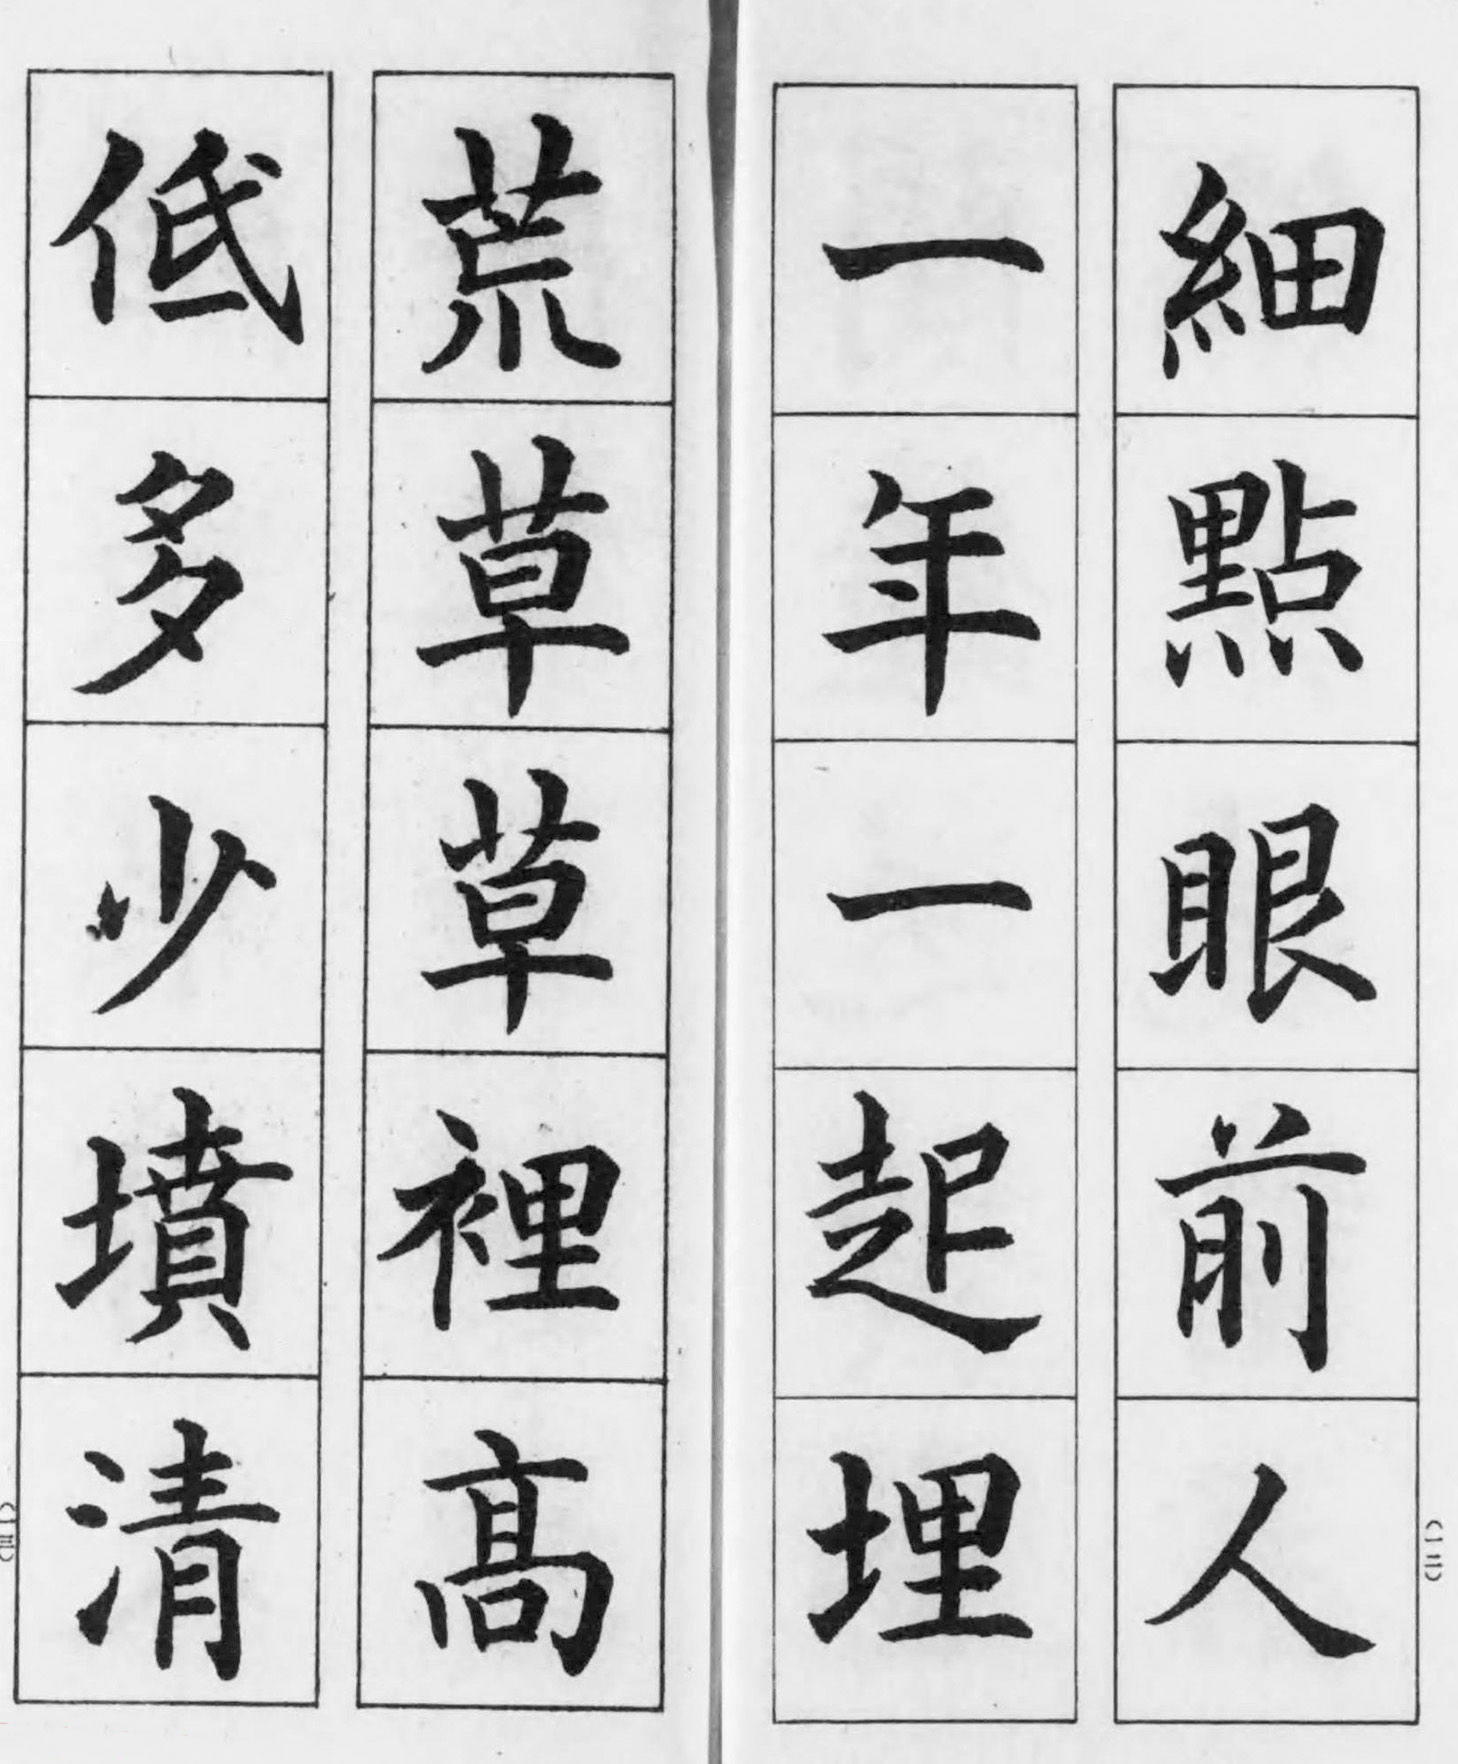 細點眼前人
一年一起埋
荒草草裡高
低多少墳清